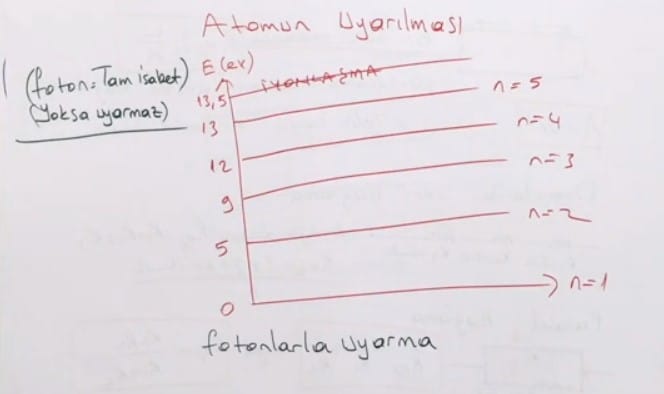 Atomun Uyarılması
(foton: Tam isabet)
(Yoksa uyarmaz)
E (ev)
13,5 İYONLAŞMA
13 n=5
12 n=4
9 n=3
5 n=2
0 n=1
fotonlarla uyarma